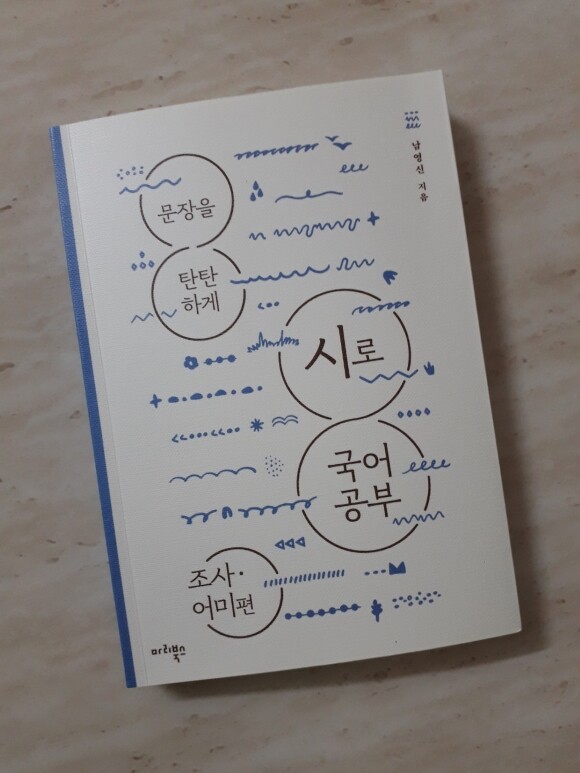 남영신 지음
문장을
탄탄
하게
시로
국어
공부
조사·
어미편
마리북스